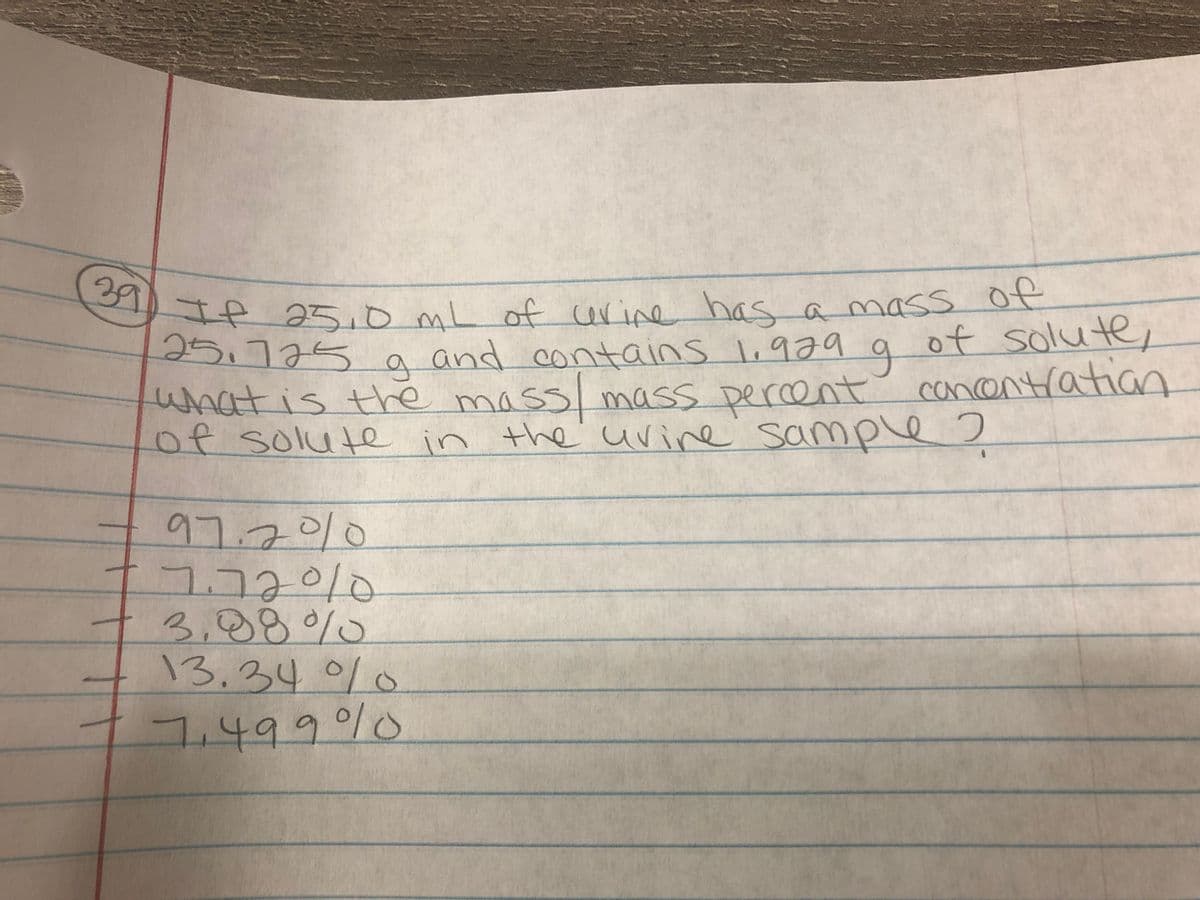 39) If 25.0 mL of urine has a mass of
25.725 g and contains 1.929 g of solute,
what is the mass/mass percent concentration
of solute in the urine sample?
- 97.2%
- 7.72%
- 3.88%
- 13.34%
- 7.499%